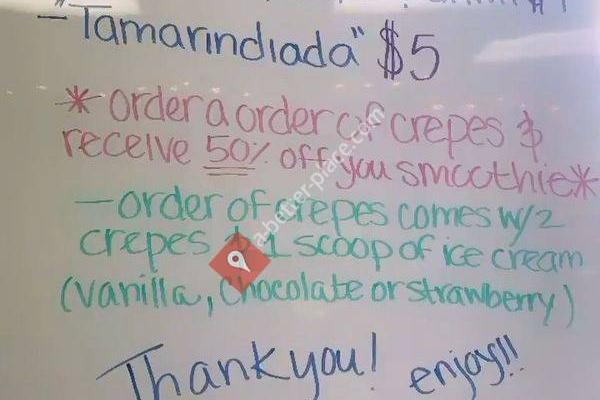 -"Tamarindiada" $5
*order a order of crepes &
receive 50% off you smoothie*
-order of crepes comes w/2
crepes & 1 scoop of ice cream
(vanilla, Chocolate or strawberry)
Thank you! enjoy!!
a-better-place.com